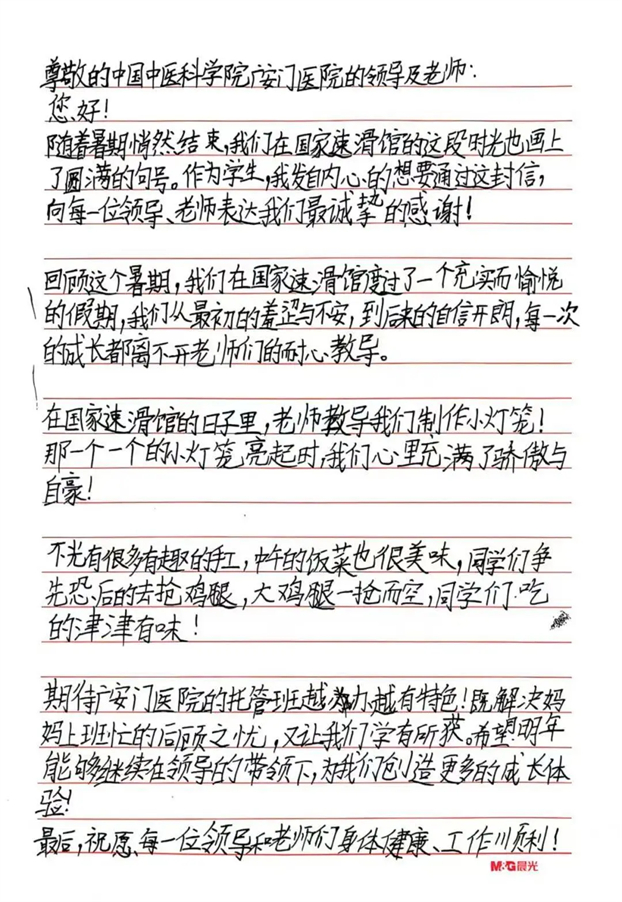 尊敬的中国中医科学院广安门医院的领导及老师：
您好！
随着暑期悄然结束，我们在国家速滑馆的这段时光也画上
了圆满的句号。作为学生，我发自内心的想要通过这封信，
向每一位领导、老师表达我们最诚挚的感谢！
回顾这个暑期，我们在国家速滑馆度过了一个充实而愉悦
的假期，我们从最初的羞涩与不安，到后来的自信开朗，每一次
的成长都离不开老师们的耐心教导。
在国家速滑馆的日子里，老师教导我们制作小灯笼！
那一个一个的小灯笼亮起时，我们心里充满了骄傲与
自豪！
不光有很多有趣的手工，中午的饭菜也很美味，同学们争
先恐后的去抢鸡腿，大鸡腿一抢而空，同学们吃
的津津有味！
期待广安门医院的托管班越办越有特色！既解决妈
妈上班忙的后顾之忧，又让我们学有所获。希望明年
能够继续在领导的带领下，为我们创造更多的成长体
验！
最后，祝愿每一位领导和老师们身体健康、工作顺利！
M&G晨光